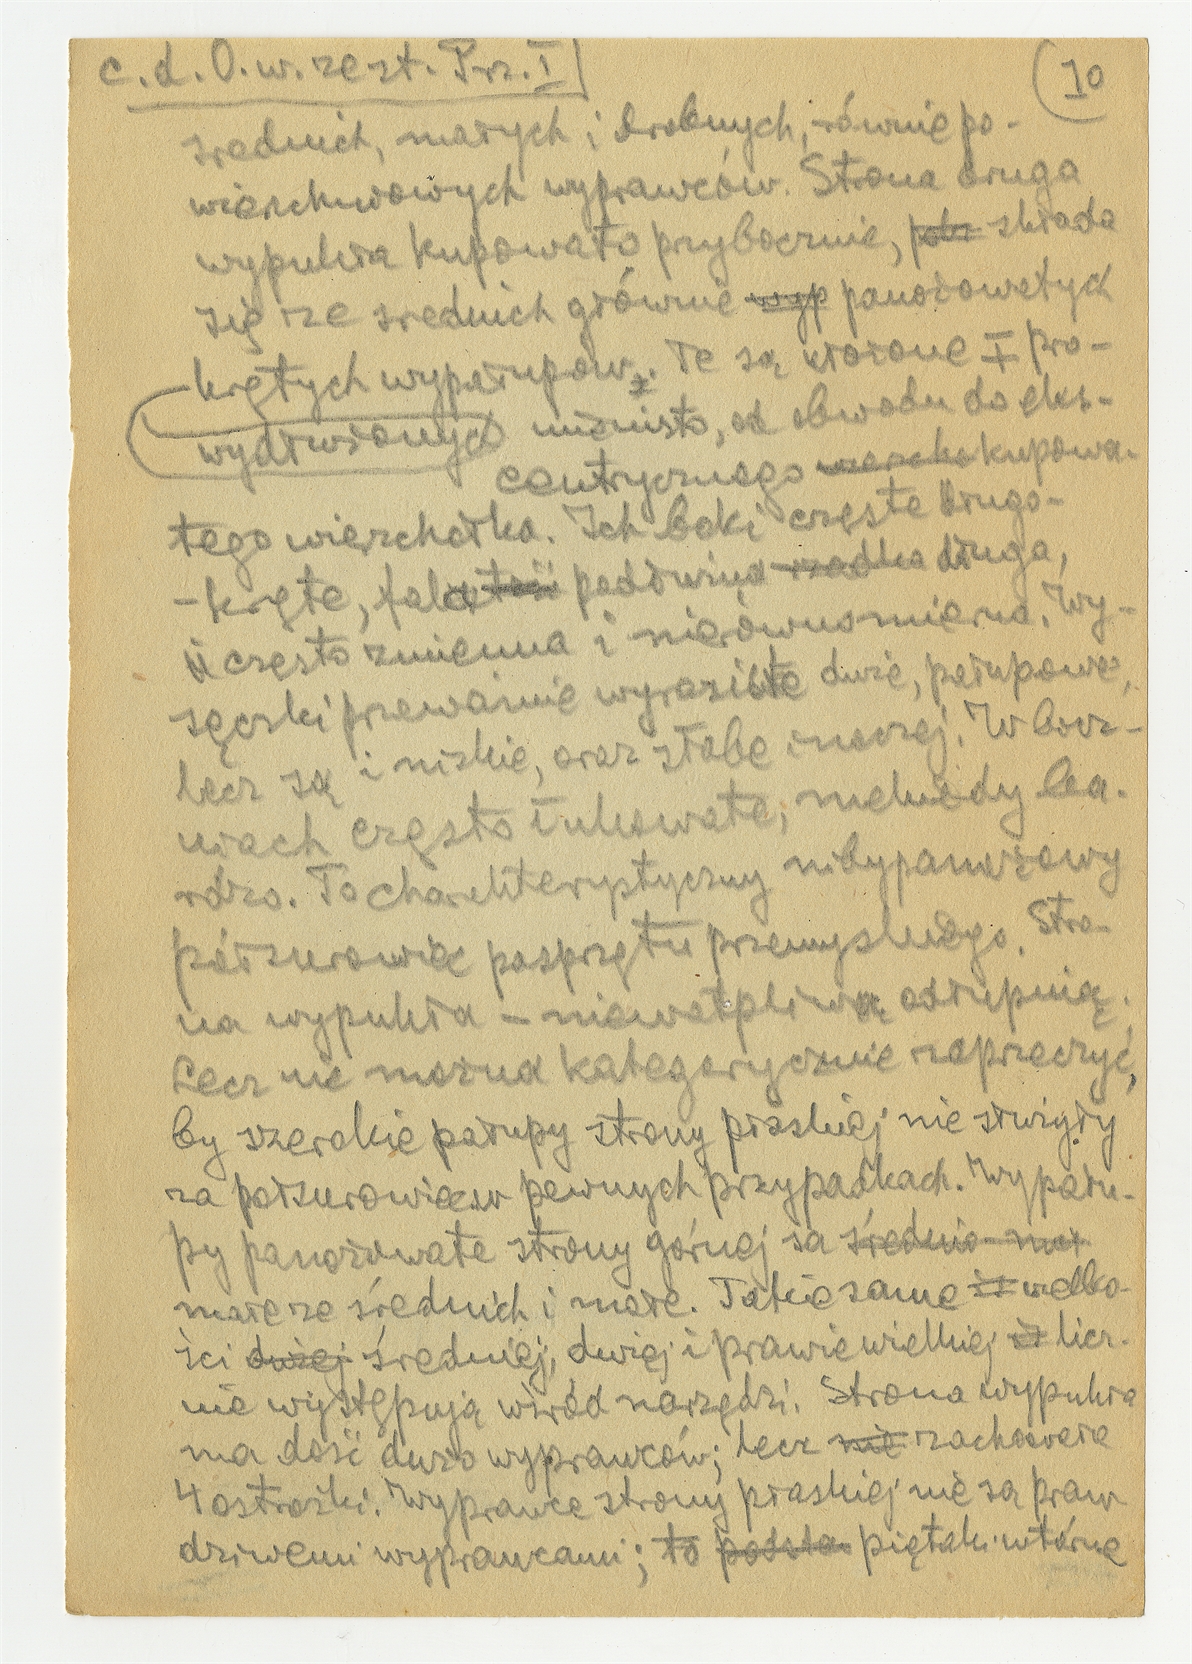 c.d. O. w. zest. Prz. I
10
średnich, małych i drobnych, równie po-
wierzchwowych wyprawców. Strona druga
wypukła kupowato przybocznie, składa
się ze średnich głównie wyp panożowatych
krętych wypałupow. Te są złożone I pro-
wydłużonych mienisto, od obwodu do eks-
centrycznego kupowa-
tego wierzchołka. Ich boki częste długo-
-kręte, fala podłużna rzadka długa,
i często zmienna i nierównomierna. Wy-
sączki przeważnie wyraziste duże, pałupowe,
lecz są i nizkie, oraz słabe inaczej. W brór-
niach często łukowate, niekiedy ba-
rdzo. To charakterystyczny nibypanożowy
półsurowiec posprzętu przemysłuego. Stro-
na wypukła – niewątpliwą odłupnią.
Lecz nie można kategorycznie zaprzeczyć,
by szerokie pałupy strony płaskiej nie służyły
za półsurowiec w pewnych przypadkach. Wypału-
py panożowate strony górnej są średnio-
małe ze średnich i małe. Takie same wielko-
ści dużej średniej, dużej i prawie wielkiej licz-
nie występują wśród narzędzi. Strona wypukła
ma dość dużo wyprawców; lecz nie zachowała
4 ostrożki. Wyprawce strony płaskiej nie są praw
dziwemi wyprawcami; to piętzki wtórne